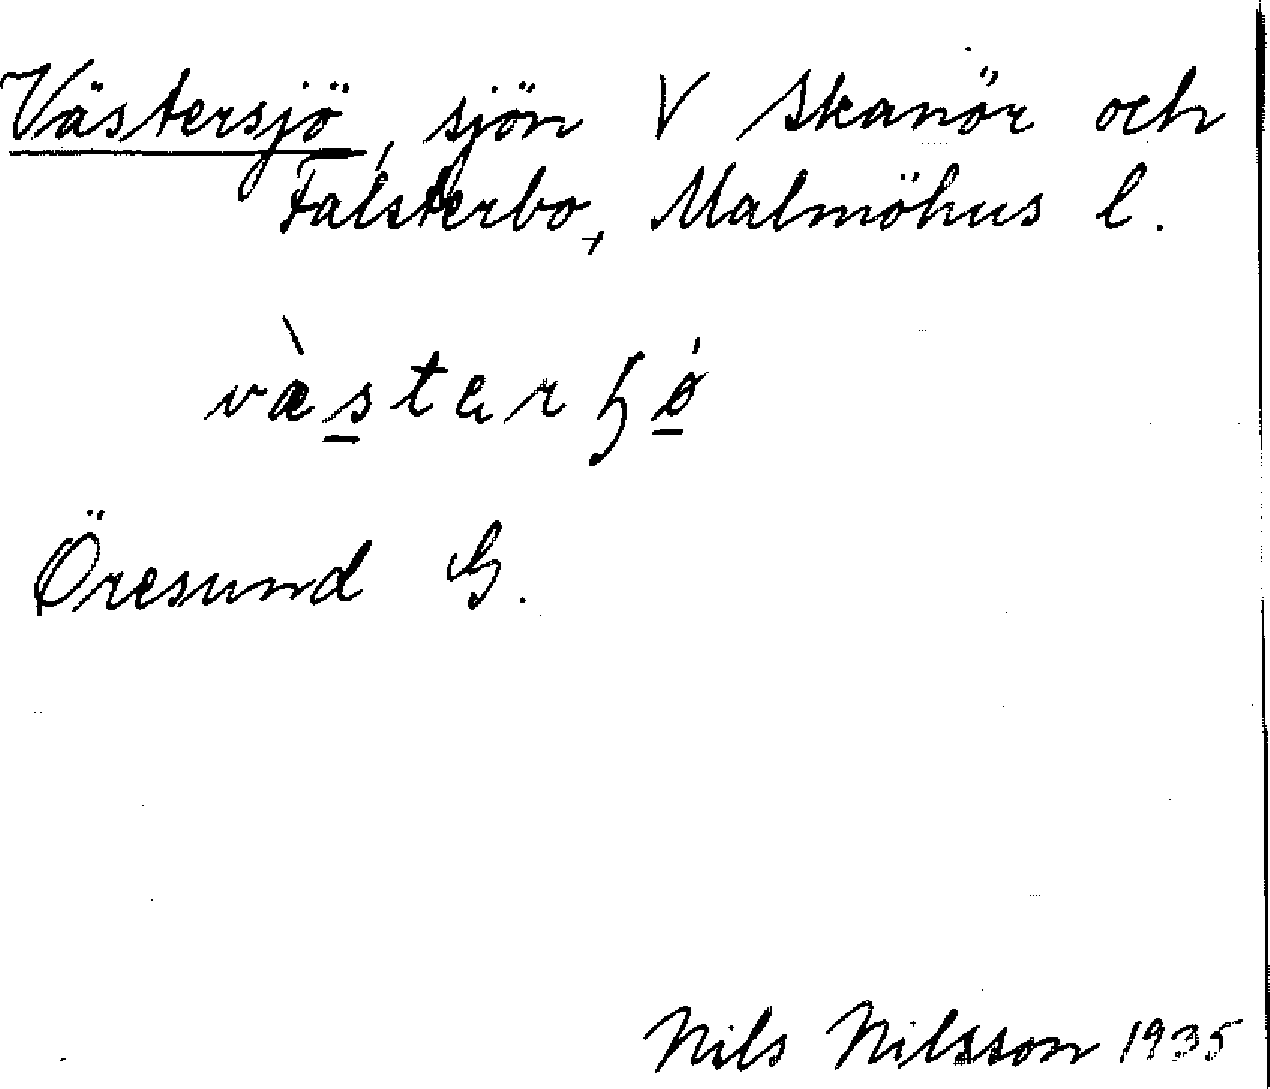 Västersjö, sjön V Skanör och
Falsterbo, Malmöhus l.
Öresund G.
Nils Nilsson 1935